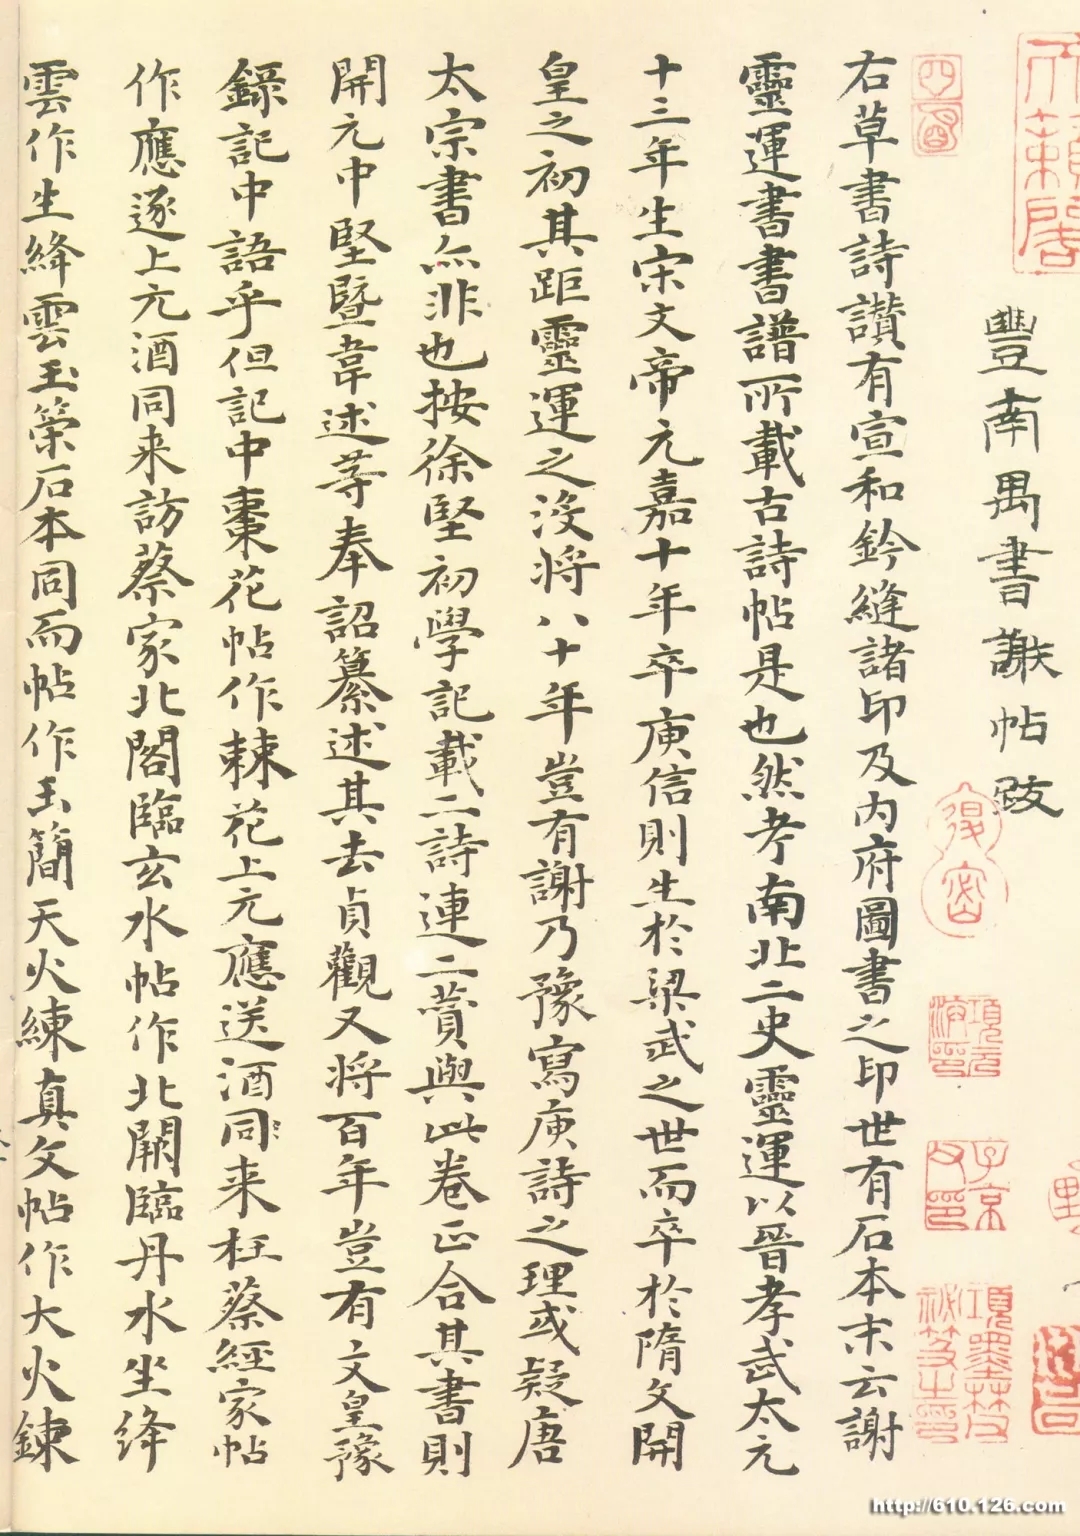 豐南禺書謝帖跋
右草書詩讚有宣和鈐縫諸印及內府圖書之印世有石本末云謝
靈運書書譜所載古詩帖是也然考南北二史靈運以晉孝武太元
十三年生宋文帝元嘉十年卒庾信則生於梁武之世而卒於隋文開
皇之初其距靈運之沒將八十年豈有謝乃豫寫庾詩之理或疑唐
太宗書亦非也按徐堅初學記載二詩連二贊與此卷正合其書則
開元中堅暨韋述等奉詔纂述其去貞觀又將百年豈有文皇豫
錄記中語乎但記中棗花帖作棘花上元應送酒同来枉蔡經家帖
作應逐上元酒同来訪蔡家北閣臨玄水帖作北闕臨丹水坐絳
雲作生絳雲玉策石本同而帖作玉簡天火練真文帖作大火鍊
項元汴印
子京父印
項墨林父秘笈之印
http://610.126.com